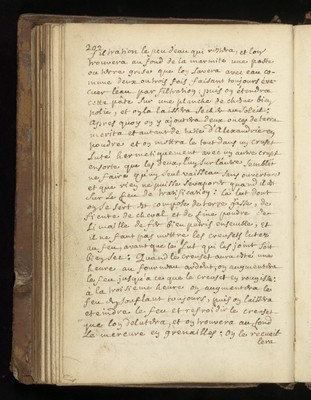 202
filtration le peu deau qui restera, et lon
trouvera au fond de la marmite une patte
ou terre grise que lon lavera avec eau co-
mme deux ou trois fois faisant toujours eva-
cuer leau par filtration; puis on etendra
cette pate sur une planche de chesne bien
polie, et on la laissera secher au soleil:
Apres quoy on y ajoutera deux onces de terre
merita et autant de tartre d'Alexandrie en
poudre et on mettra le tout dans un creuset
luté hermetiquement avec un autre creuset
en sorte que les deux lun sur lautre semblent
ne faire qu'un seul vaisseau sans ouverture
et que rien ne puisse sevaporer quand il est
sur le feu de : Le lut dont
on se sert est compose de terre grasse, de
fiente de cheval et de fine poudre de
limaille de fer bien petris ensemble; et
il ne faut pas mettre les creusets lutés
au feu, avant que le lut qui les joint soit
bien sec: Quand le creuset aura eté une
heure au fourneau ardent, on augmentera
le feu jusqu'a ce que le creuset en rougisse:
à la troisieme heure on augmentera le
feu en souflant toujours; puis on laissera
eteindre le feu et refroidir le creuset
que lon delutera, et on trouvera au fond
le mercure en grenailles: On les recueil-
lera